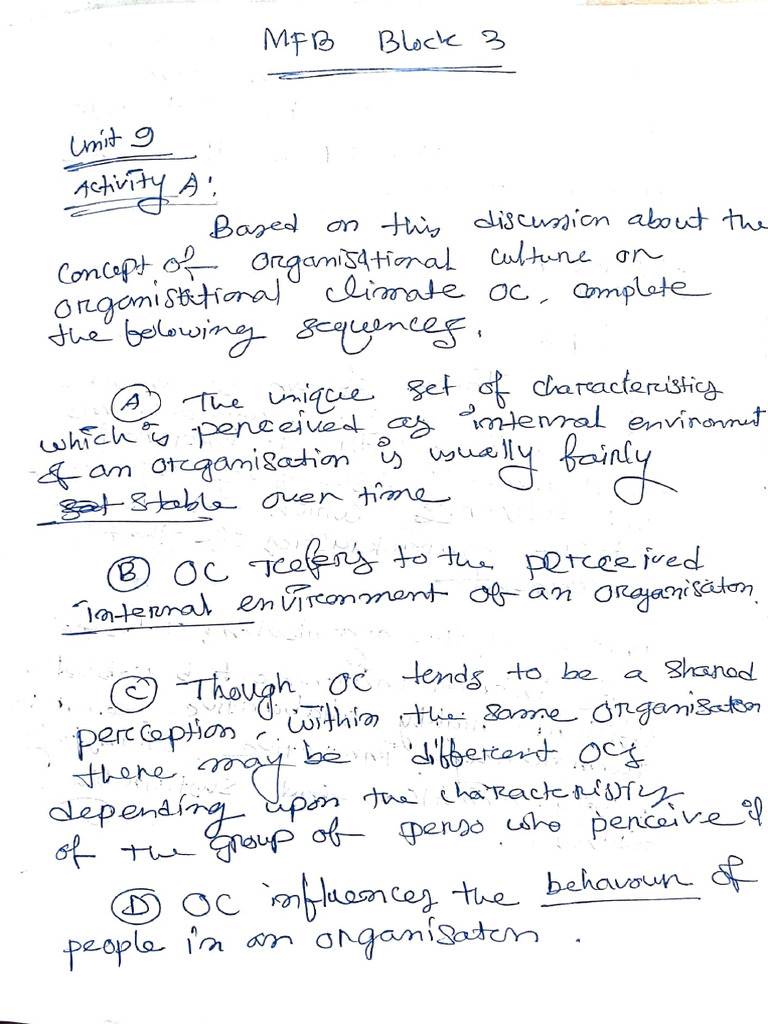 MFB Block 3
Unit 9
Activity A:
Based on this discussion about the
concept of organisational culture or
organisational climate OC, complete
the following sequences.
(A) The unique set of characteristics
which is perceived as internal environment
of an organisation is usually fairly
stable over time
(B) OC refers to the perceived
internal environment of an organisaton.
(C) Though OC tends to be a shared
perception, within the same organisaton
there may be different OCs
depending upon the characteristics
of the group of perso who perceive it
(D) OC influences the behavour of
people in an organisaton.